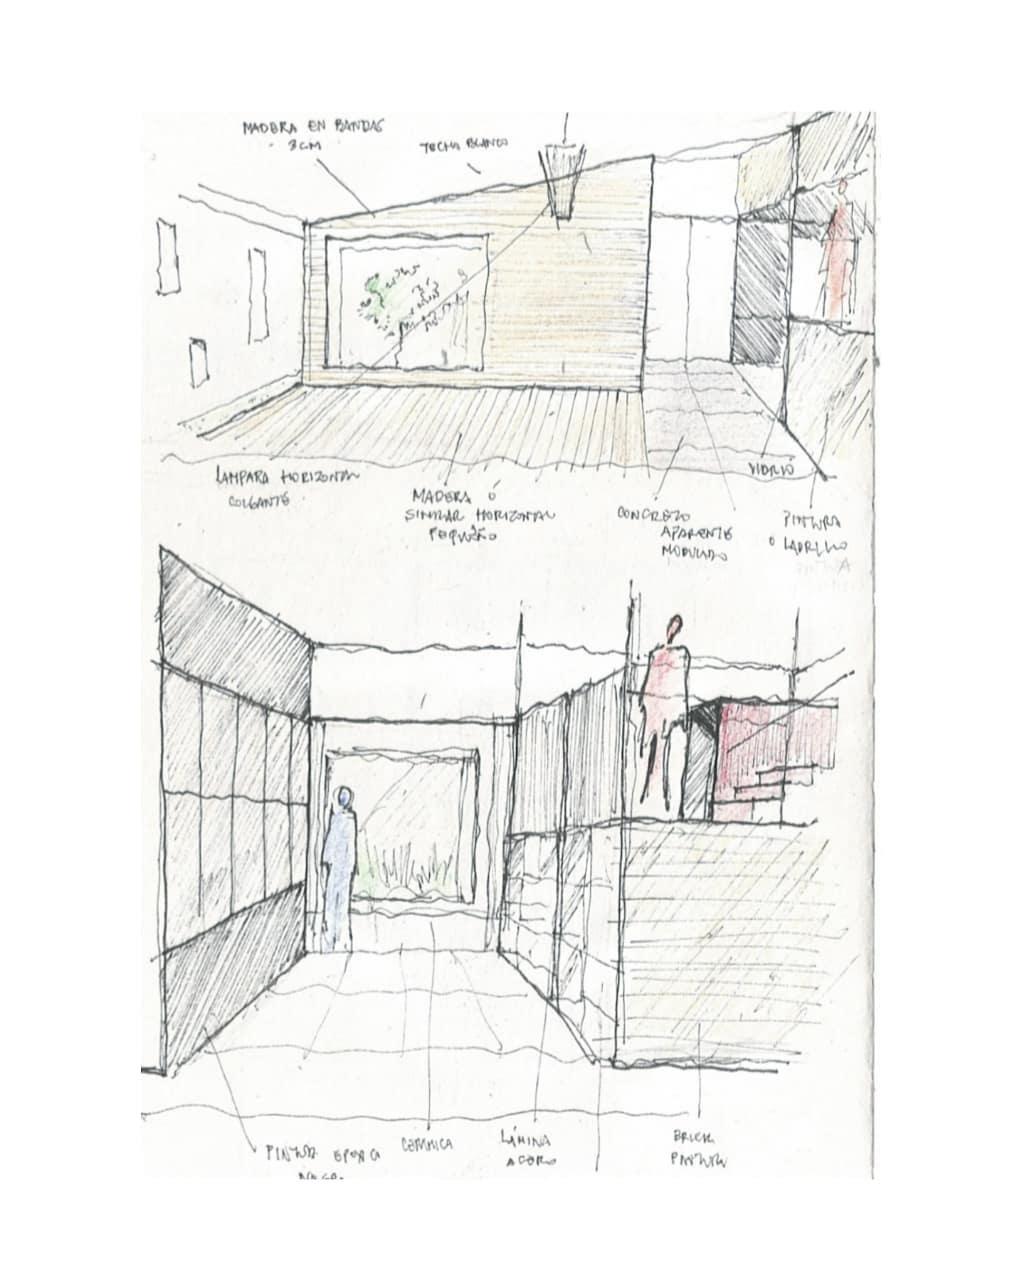 MADERA EN BANDAS
3CM
TECHO BLANCO
LAMPARA HORIZONTAL
COLGANTE
MADERA Ó
SIMILAR HORIZONTAL
PEQUEÑO
CONCRETO
APARENTE
MODULADO
VIDRIO
PINTURA
O LADRILLO
PINTURA EPOXICA
NEGRA
CERAMICA
LÁMINA
ACERO
BRICK
PINTURA